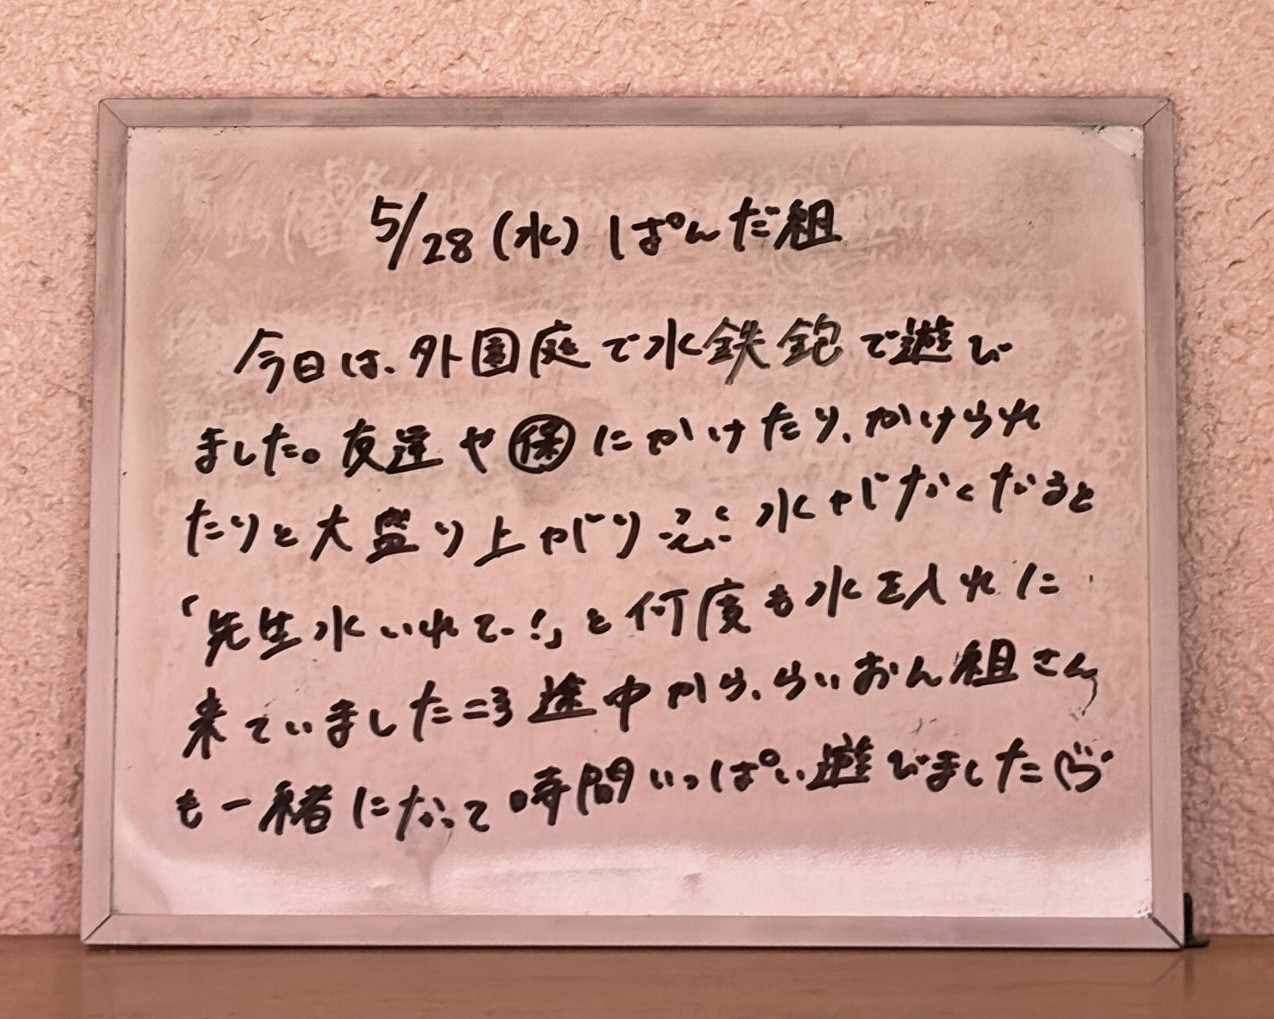 5/28(水) ぱんだ組
今日は、外園庭で水鉄鉋で遊び
ました。友達や㊝にかけたり、かけられ
たりと大盛り上がり 水がなくなると
「先生水いれてー!」と何度も水を入れに
来ていました 途中から、らいおん組さん
も一緒になって時間いっぱい遊びました